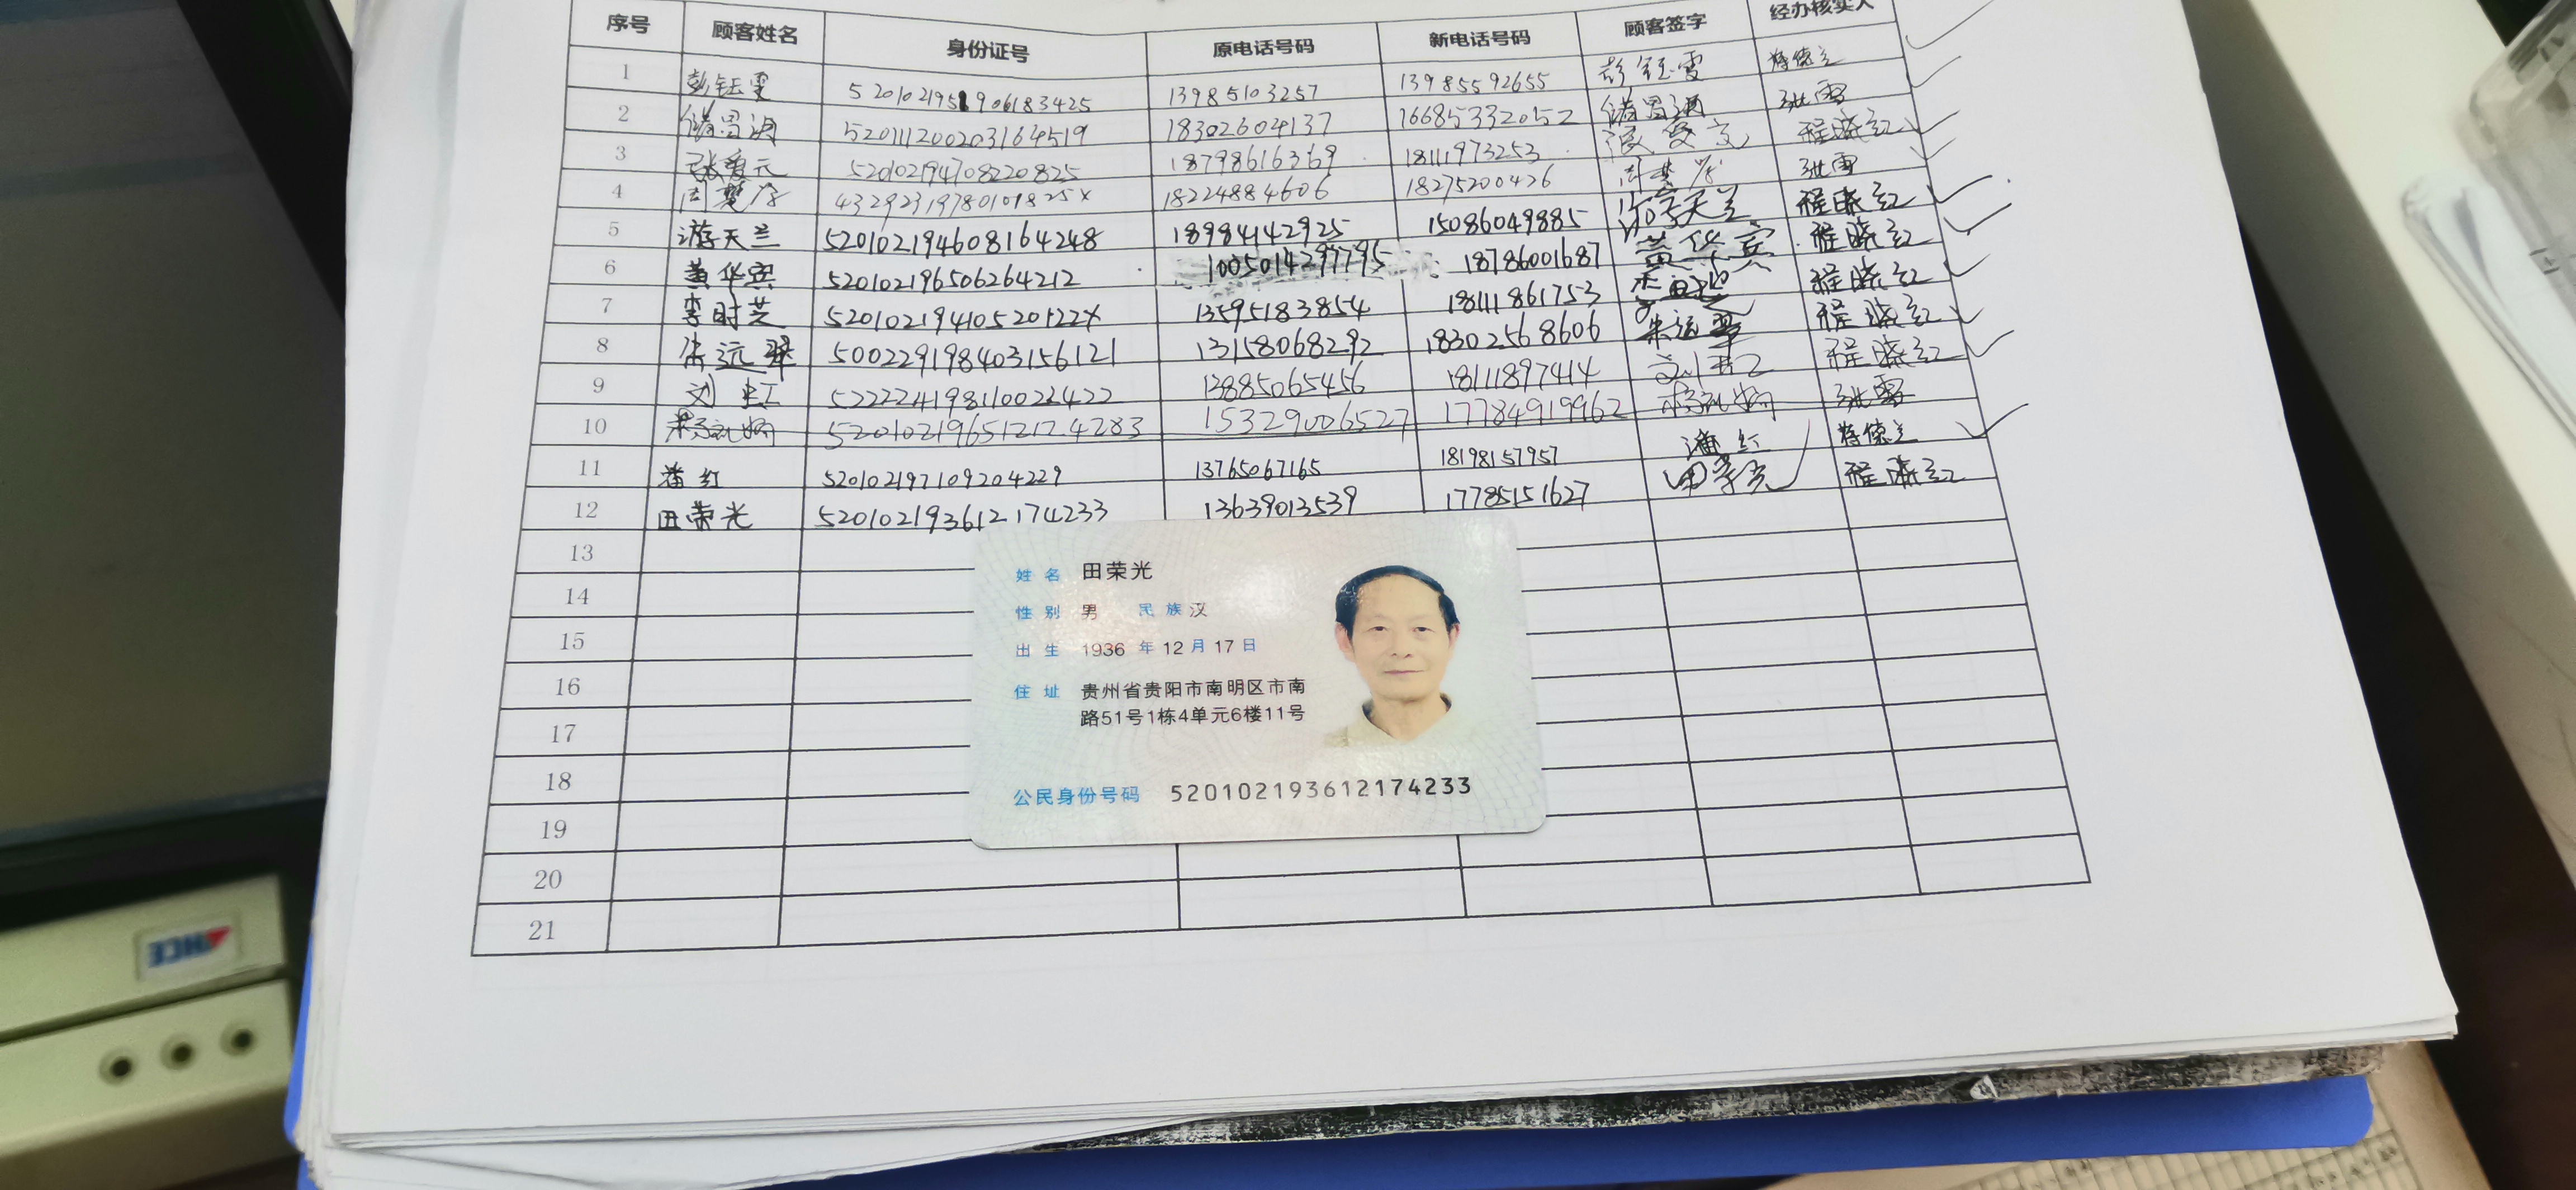 序号 顾客姓名 身份证号 原电话号码 新电话号码 顾客签字 经办核实人
1 彭钰雯 13985103257 13985592655 彭钰雯 蒋德兰
2 520111200203164519 18302604137 16685332052 张雪
3 张爱元 520102194708220825 18798616369 18111973253 程晓红
4 周楚 43292319780101825X 18224884606 18275200426 张雪
5 游天兰 520102194608164248 18984142925 15086049885 游天兰 程晓红
6 黄华宾 520102196506264212 18786001687 黄华宾 程晓红
7 李时芝 52010219410520122X 13595183854 18111861753 程晓红
8 朱远翠 500229198403156121 13158068292 18302568606 朱远翠 程晓红
9 刘红 13885065456 18111897414 刘红 程晓红
10 520102196512124283 15329006527 17784919962 张雪
11 潘红 520102197109204229 13765067165 18198157957 潘红 蒋德兰
12 田荣光 520102193612174233 13639013539 17785151627 田荣光 程晓红
13
14
15
16
17
18
19
20
21
姓名 田荣光
性别 男 民族 汉
出生 1936 年 12 月 17 日
住址 贵州省贵阳市南明区市南
路51号1栋4单元6楼11号
公民身份号码 520102193612174233